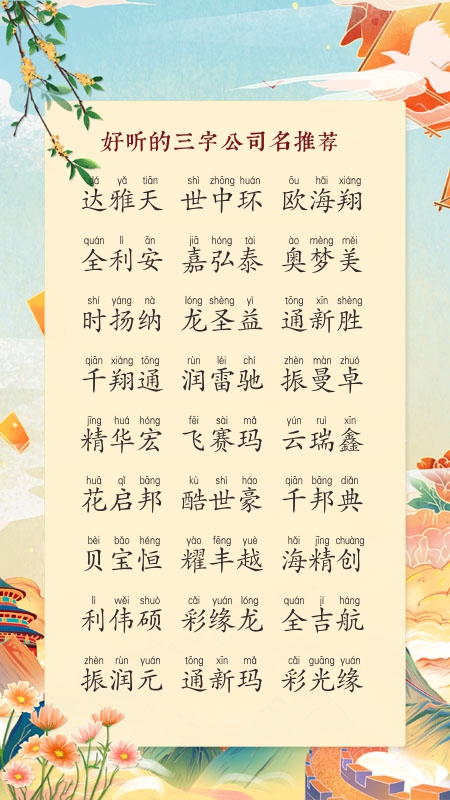 好听的三字公司名推荐
dá yǎ tiān shì zhōng huán ōu hǎi xiáng
达雅天 世中环 欧海翔
quán lì ān jiā hóng tài ào mèng měi
全利安 嘉弘泰 奥梦美
shí yáng nà lóng shèng yì tōng xīn shèng
时扬纳 龙圣益 通新胜
qiān xiáng tōng rùn léi chí zhèn màn zhuó
千翔通 润雷驰 振曼卓
jīng huá hóng fēi sài mǎ yún ruì xīn
精华宏 飞赛玛 云瑞鑫
huā qǐ bāng kù shì háo qiān bāng diǎn
花启邦 酷世豪 千邦典
bèi bǎo héng yào fēng yuè hǎi jīng chuàng
贝宝恒 耀丰越 海精创
lì wěi shuò cǎi yuán lóng quán jí háng
利伟硕 彩缘龙 全吉航
zhèn rùn yuán tōng xīn mǎ cǎi guāng yuán
振润元 通新玛 彩光缘